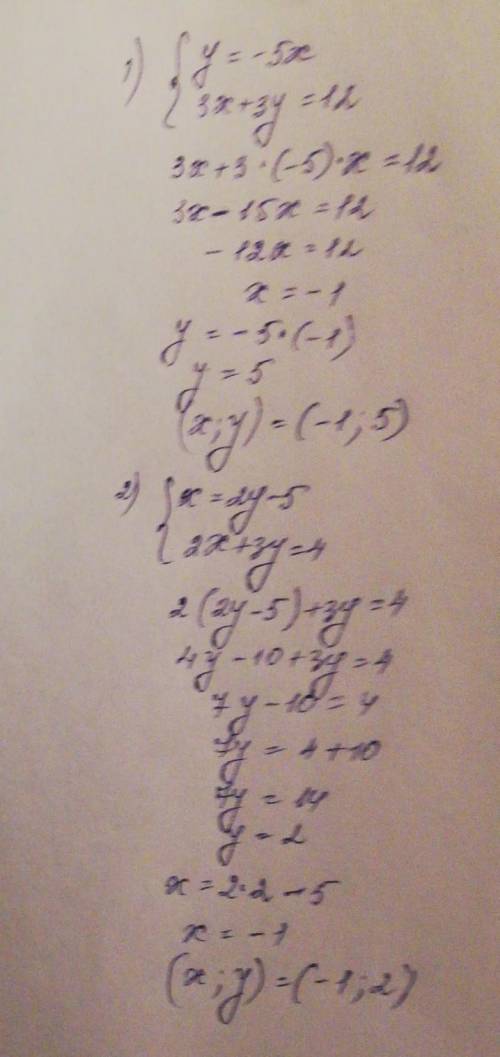 1) { y = -5x
3x+3y =12
3x+3·(-5)·x =12
3x-15x =12
-12x =12
x = -1
y = -5·(-1)
y = 5
(x;y) = (-1;5)
2) { x = 2y-5
2x+3y=4
2(2y-5)+3y=4
4y-10+3y=4
7y-10 = 4
7y = 4+10
7y = 14
y = 2
x = 2·2 -5
x = -1
(x;y) = (-1;2)